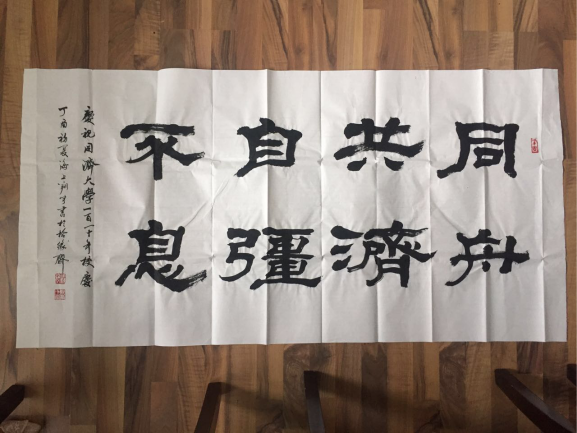 同舟
共濟
自彊
不息
慶祝同濟大學一百一十年校慶
丁酉初夏海上書於齋